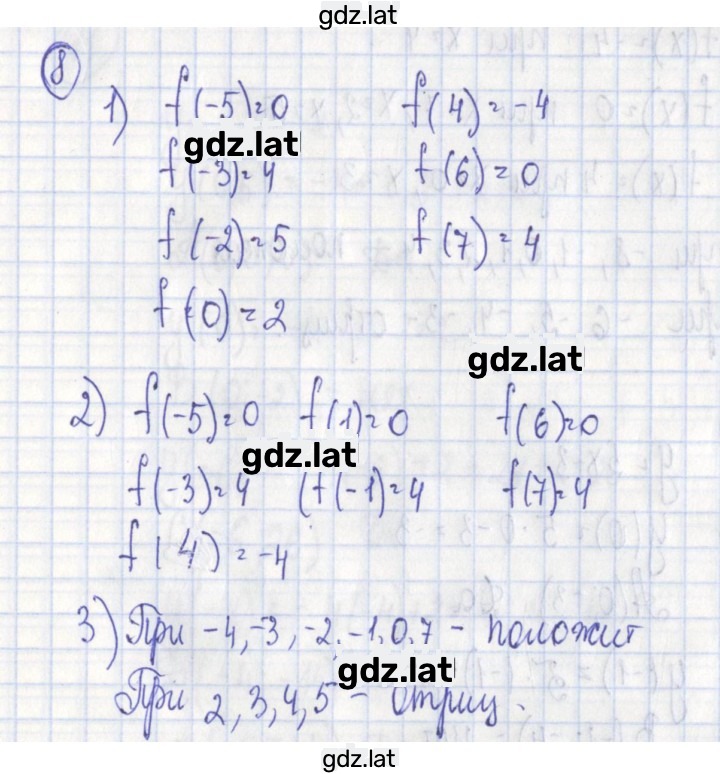 gdz.lat
8
1) f(-5)=0 f(4)=-4
gdz.lat
f(-3)=4 f(6)=0
f(-2)=5 f(7)=4
f(0)=2
gdz.lat
2) f(-5)=0 f(1)=0 f(6)=0
gdz.lat
f(-3)=4 (f(-1)=4 f(7)=4
f(4)=-4
3) При -4,-3,-2,-1,0,7 - положит
gdz.lat
При 2,3,4,5 - отриц.
gdz.lat